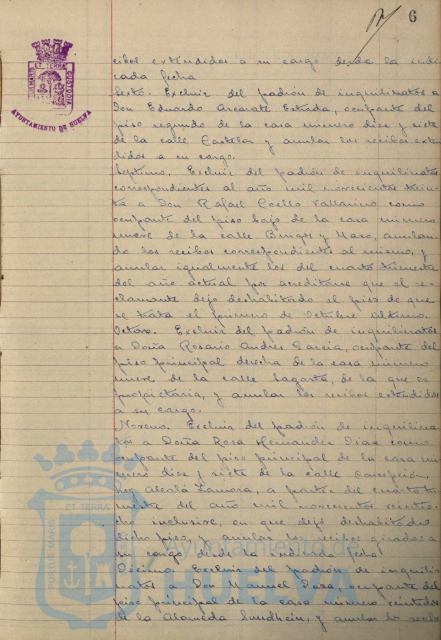 6
AYUNTAMIENTO DE HUELVA
cibos extendidos a su cargo desde la indi
cada fecha
Sexto. Excluir del padrón de inquilinatos a
Don Eduardo Estrada, ocupante del
piso segundo de la casa número diez y siete
de la calle Castelar y anular los recibos exten
didos a su cargo.
Septimo. Excluir del padrón de inquilinatos
correspondientes al año mil novecientos trein
ta a Don Rafael Coello Vallarino como
ocupante del piso bajo de la casa número
nueve de la calle Burgos y Mazo, anulan
do los recibos correspondientes al mismo, y
anular igualmente los del cuarto trimestre
del año actual por acreditarse que el re
clamante dejo deshabitado el piso de que
se trata el primero de Octubre último.
Octavo. Excluir del padrón de inquilinatos
a Doña Rosario Andres Garcia, ocupante del
piso principal derecha de la casa número
nueve de la calle Sagasta, de la que es
propietaria, y anular los recibos extendidos
a su cargo.
Noveno. Excluir del padrón de inquilina
tos a Doña Rosa Hernandez Diaz como
ocupante del piso principal de la casa nú
mero diez y siete de la calle Concepción,
hoy Alcalá Zamora, a partir del cuarto tri
mestre del año mil novecientos veintio
cho inclusive, en que dejó deshabitado
dicho piso, y anular los recibos girados a
su cargo desde la indicada fecha
Décimo. Excluir del padrón de inquili
natos a Don Manuel ocupante del
piso principal de la casa número veintidos
de la Alameda Sundheim, y anular los recibos
Ayuntamiento de
HUELVA